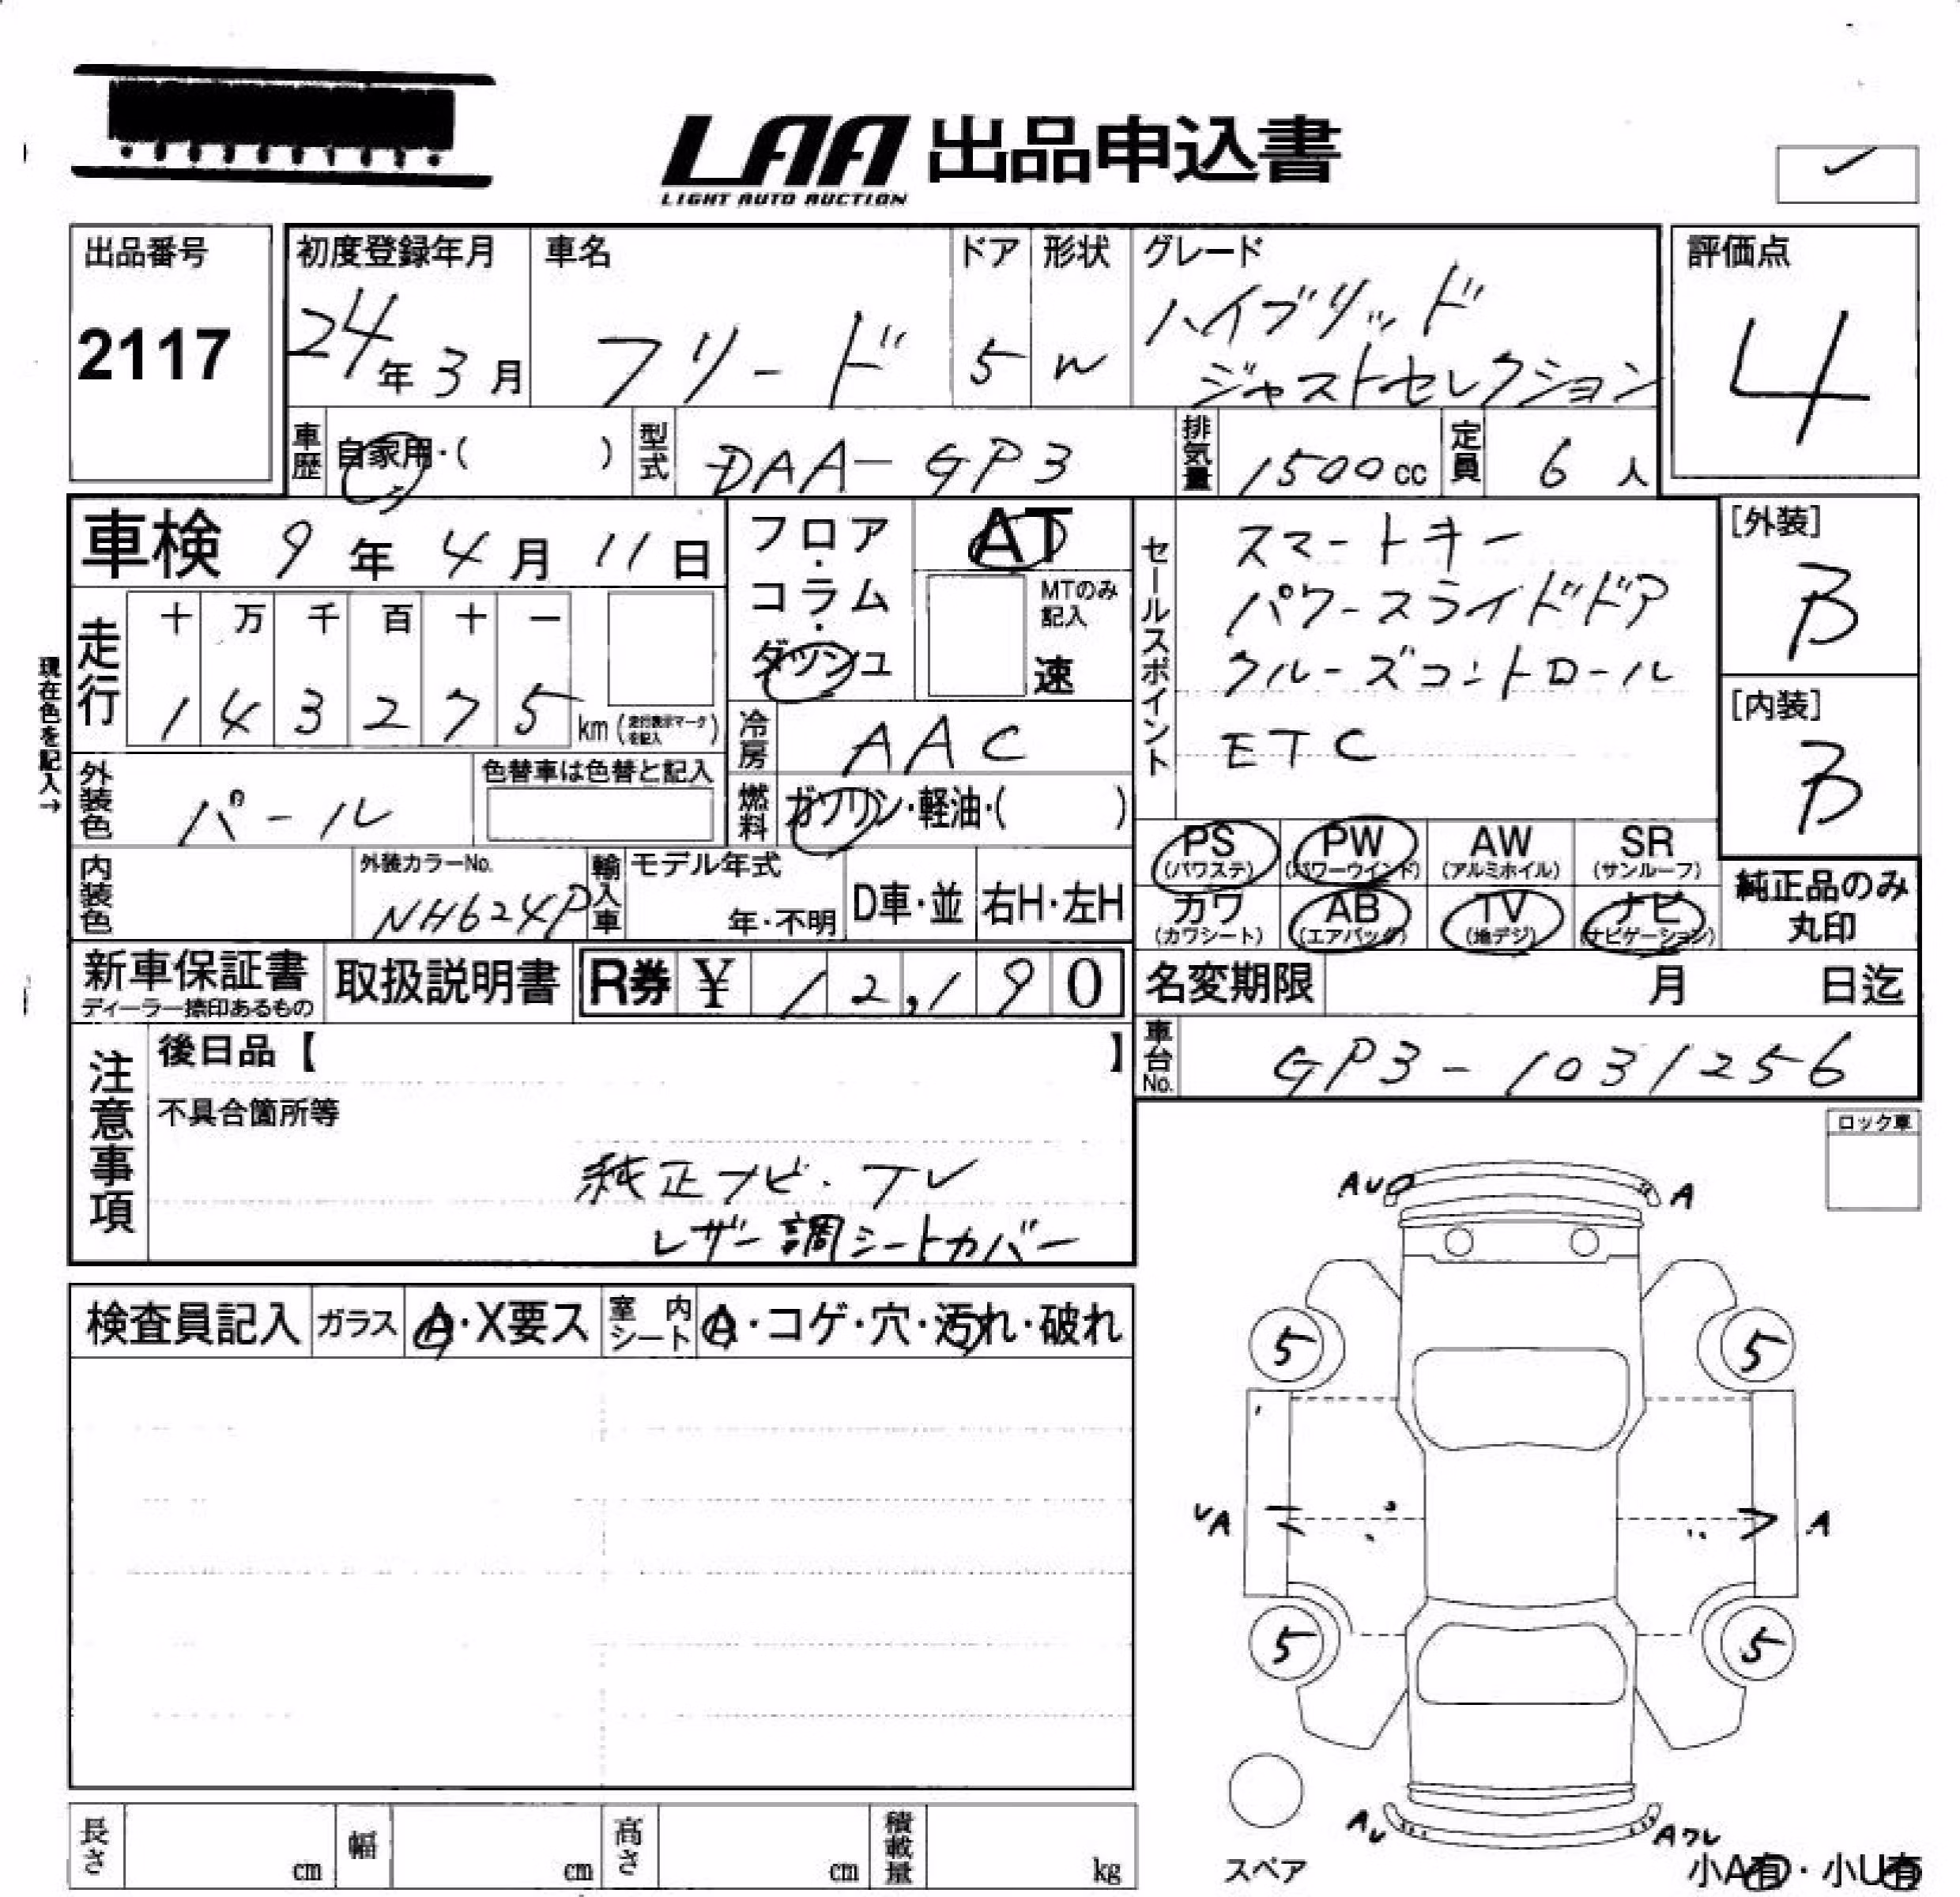 LAA 出品申込書
LIGHT AUTO AUCTION
出品番号
2117
初度登録年月
24年3月
車名
フリード
ドア
5
形状
W
グレード
ハイブリッド
ジャストセレクション
評価点
4
車歴 自家用・( )
型式 DAA-GP3
排気量 1500cc
定員 6人
車検 9年4月11日
フロア・コラム・ダッシュ
AT
MTのみ記入
速
セールスポイント
スマートキー
パワースライドドア
クルーズコントロール
ETC
[外装]
B
[内装]
B
現在色を記入→
走行
十 万 千 百 十 一
1 4 3 2 7 5 km (走行表示マークを記入)
冷房 AAC
外装色 パール
色替車は色替と記入
燃料 ガソリン・軽油・( )
PS (パワステ)
PW (パワーウインド)
AW (アルミホイル)
SR (サンルーフ)
カワ (カワシート)
AB (エアバッグ)
TV (地デジ)
ナビ (ナビゲーション)
純正品のみ丸印
内装色
外装カラーNo.
NH624P
輸入車
モデル年式
年・不明
D車・並
右H・左H
新車保証書
ディーラー捺印あるもの
取扱説明書
R券 ¥ 12,190
名変期限 月 日迄
車台No. GP3-1031256
注意事項
後日品【 】
不具合箇所等
純正ナビ・TV
レザー調シートカバー
ロック車
検査員記入
ガラス A・X要ス
室内シート A・コゲ・穴・汚れ・破れ
AU
A
5
5
A
A
5
5
スペア
AU
小A有・小U有
長さ cm
幅 cm
高さ cm
積載量 kg